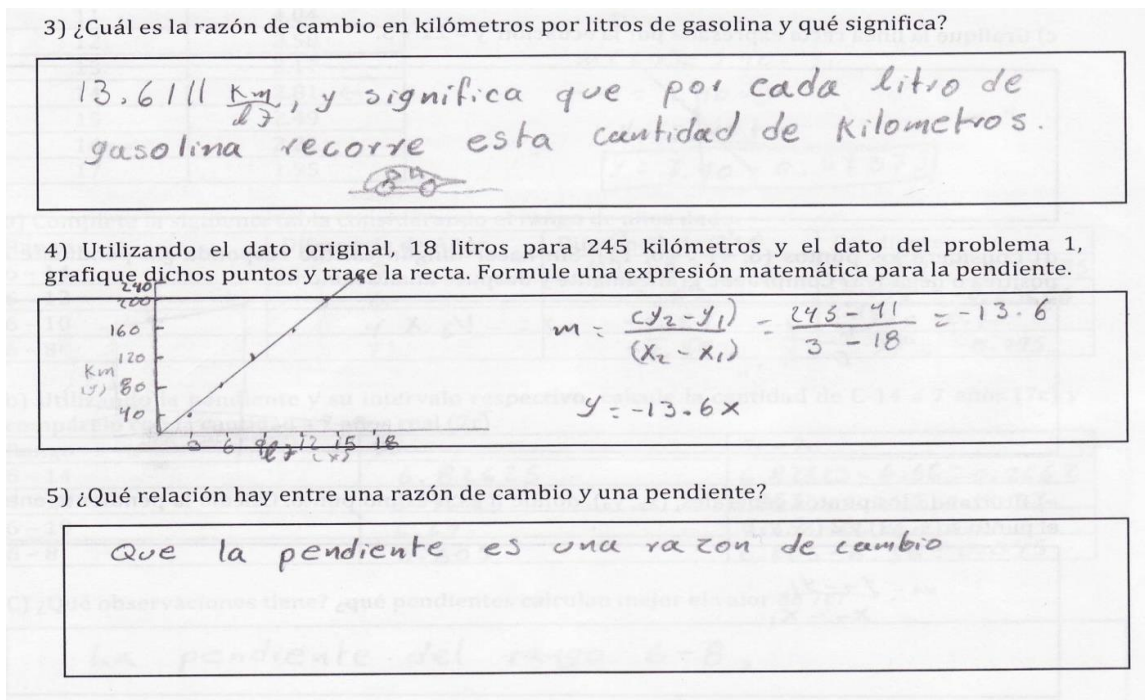 3) ¿Cuál es la razón de cambio en kilómetros por litros de gasolina y qué significa?
13.6111 Km/lt, y significa que por cada litro de
gasolina recorre esta cantidad de Kilometros.
4) Utilizando el dato original, 18 litros para 245 kilómetros y el dato del problema 1,
grafique dichos puntos y trace la recta. Formule una expresión matemática para la pendiente.
240
200
160
120
Km
(y) 80
40
3 6 9 12 15 18
lt (x)
m = (y2-y1)/(x2-x1) = 245-41/3-18 = -13.6
y = -13.6x
5) ¿Qué relación hay entre una razón de cambio y una pendiente?
Que la pendiente es una razon de cambio